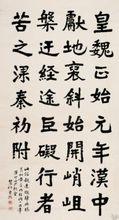 皇魏正始元年漢中
獻地褒斜始開峭岨
槃迂經途巨礙行者
苦之梁秦初附